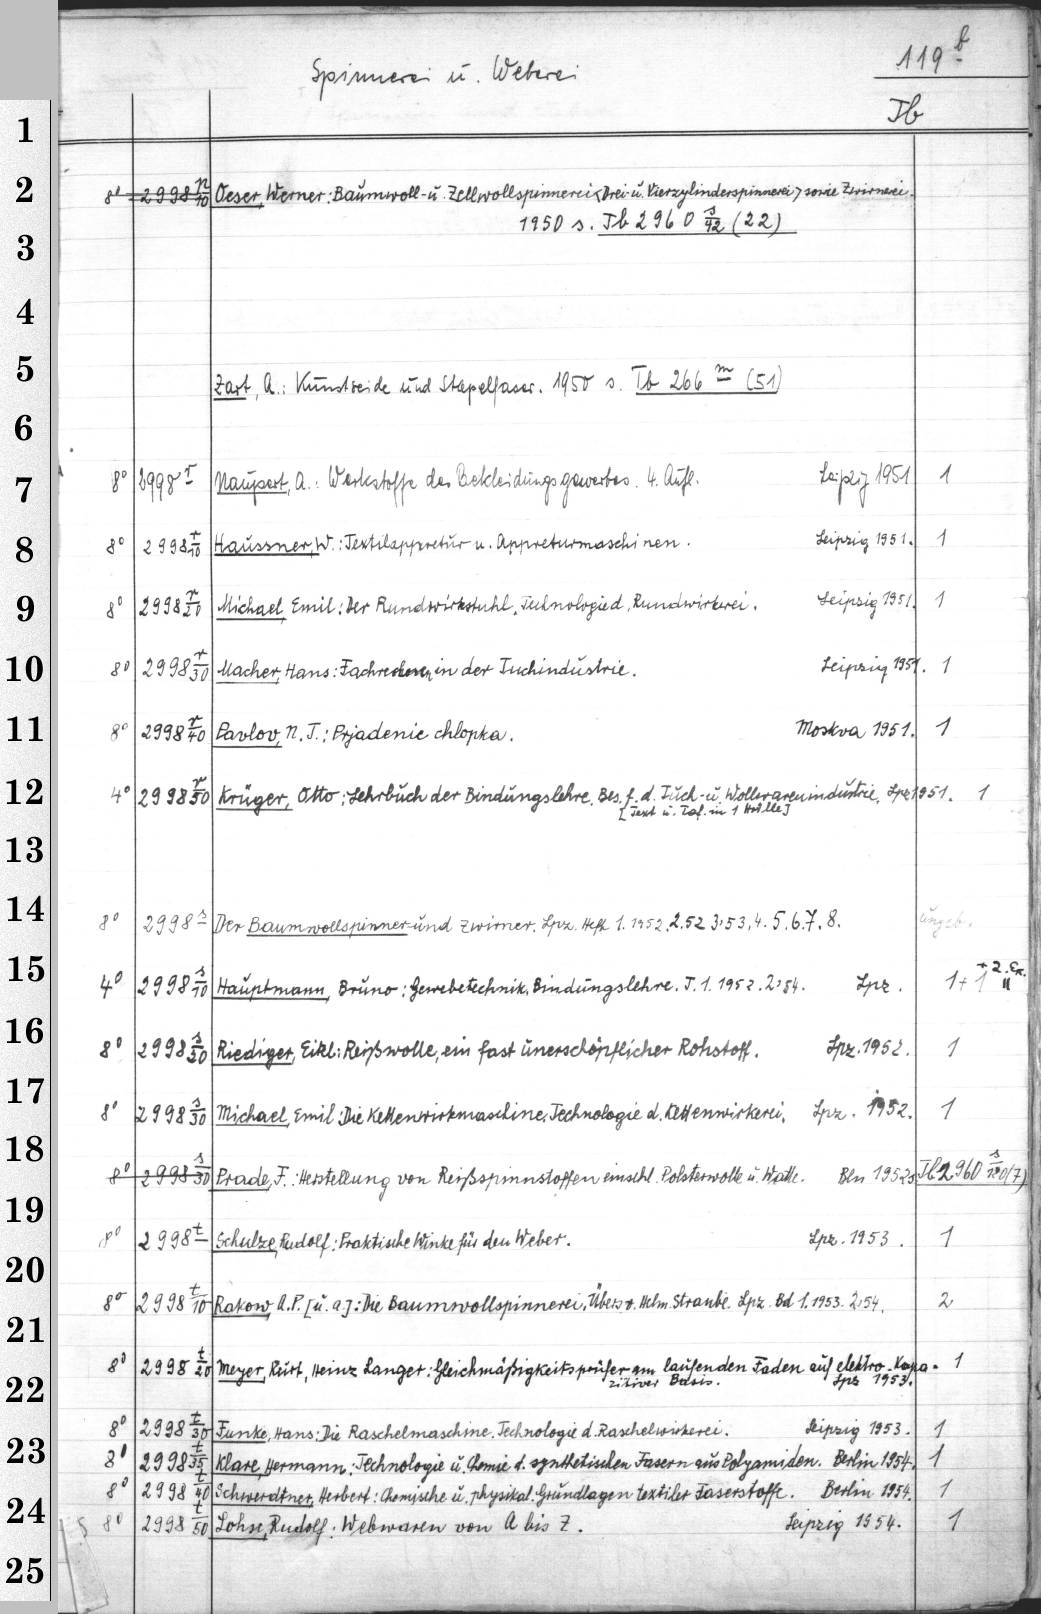 119 b
Spinnerei u. Weberei
Tb
1
2
3
4
5
6
7
8
9
10
11
12
13
14
15
16
17
18
19
20
21
22
23
24
25
8° 2998 n/10 Oeser, Werner: Baumwoll- u. Zellwollspinnerei <Drei- u. Vierzylinderspinnerei> sowie Zwirnerei.
1950 s. Tb 2960 s/42 (22)
Zart, A.: Kunstseide und Stapelfaser. 1950 s. Tb 266 m (51)
8° 2998 r Naupert, A.: Werkstoffe des Bekleidungsgewerbes. 4. Aufl. Leipzig 1951 1
8° 2998 r/10 Haussner, W.: Textilappretur u. Appreturmaschinen. Leipzig 1951. 1
8° 2998 r/20 Michael, Emil: Der Rundwirkstuhl. Technologie d. Rundwirkerei. Leipzig 1951. 1
8° 2998 r/30 Macher, Hans: Fachrechnen in der Tuchindustrie. Leipzig 1951. 1
8° 2998 r/40 Pavlov, N. T.: Prjadenie chlopka. Moskva 1951. 1
4° 2998 r/50 Krüger, Otto: Lehrbuch der Bindungslehre. Bes. f. d. Tuch- u. Wollwarenindustrie. Lpz 1951. 1
[Text u. Taf. in 1 Hülle]
8° 2998 s Der Baumwollspinner und Zwirner. Lpz. Heft 1. 1952. 2.52 3.53. 4. 5. 6. 7. 8. ungeb.
4° 2998 s/10 Hauptmann, Bruno: Gewebetechnik. Bindungslehre. T. 1. 1952. 2.54. Lpz. 1 + 1 + 2. Ex. II
8° 2998 s/20 Riediger, Eikl: Reißwolle, ein fast unerschöpflicher Rohstoff. Lpz. 1952. 1
8° 2998 s/30 Michael, Emil: Die Kettenwirkmaschine. Technologie d. Kettenwirkerei. Lpz. 1952. 1
8° 2998 s/30 Prade, F.: Herstellung von Reißspinnstoffen einschl. Polsterwolle u. Watte. Bln 1952 s. Tb 2960 s/120 (7)
8° 2998 t Schulze, Rudolf: Praktische Winke für den Weber. Lpz. 1953. 1
8° 2998 t/10 Rakow, A. P. [u. a.]: Die Baumwollspinnerei. Übers. v. Helm. Straube. Lpz. Bd 1. 1953. 2.54. 2
8° 2998 t/20 Meyer, Kurt, Heinz Langer: Gleichmäßigkeitsprüfer am laufenden Faden auf elektro-Kapa- 1
zitiver Basis. Lpz 1953.
8° 2998 t/30 Funke, Hans: Die Raschelmaschine. Technologie d. Raschelwirkerei. Leipzig 1953. 1
8° 2998 t/35 Klare, Hermann: Technologie u. Chemie d. synthetischen Fasern aus Polyamiden. Berlin 1954. 1
8° 2998 t/40 Schwerdtner, Herbert: Chemische u. physikal. Grundlagen textiler Faserstoffe. Berlin 1954. 1
8° 2998 t/50 Lohse, Rudolf: Webwaren von A bis Z. Leipzig 1954. 1